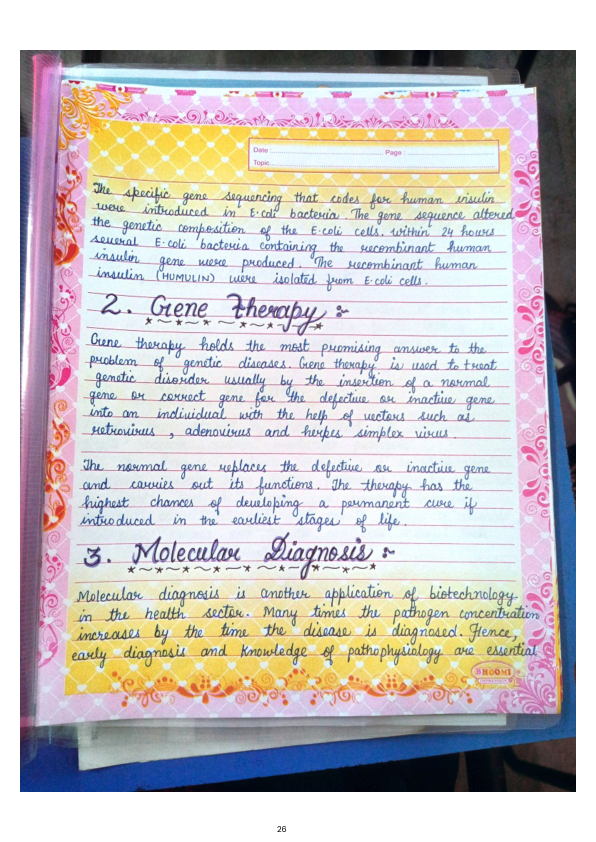 Date : Page :
Topic
The specific gene sequencing that codes for human insulin
were introduced in E.coli bacteria. The gene sequence altered
the genetic composition of the E.coli cells. within 24 hours
several E.coli bacteria containing the recombinant human
insulin gene were produced. The recombinant human
insulin (HUMULIN) were isolated from E.coli cells.
2. Gene Therapy :-
Gene therapy holds the most promising answer to the
problem of genetic diseases. Gene therapy is used to treat
genetic disorder usually by the insertion of a normal
gene or correct gene for the defective or inactive gene
into an individual with the help of vectors such as
retrovirus , adenovirus and herpes simplex virus.
The normal gene replaces the defective or inactive gene
and carries out its functions. The therapy has the
highest chances of developing a permanent cure if
introduced in the earliest stages of life.
3. Molecular Diagnosis :-
Molecular diagnosis is another application of biotechnology
in the health sector. Many times the pathogen concentration
increases by the time the disease is diagnosed. Hence,
early diagnosis and knowledge of pathophysiology are essential
BHOOMI
26